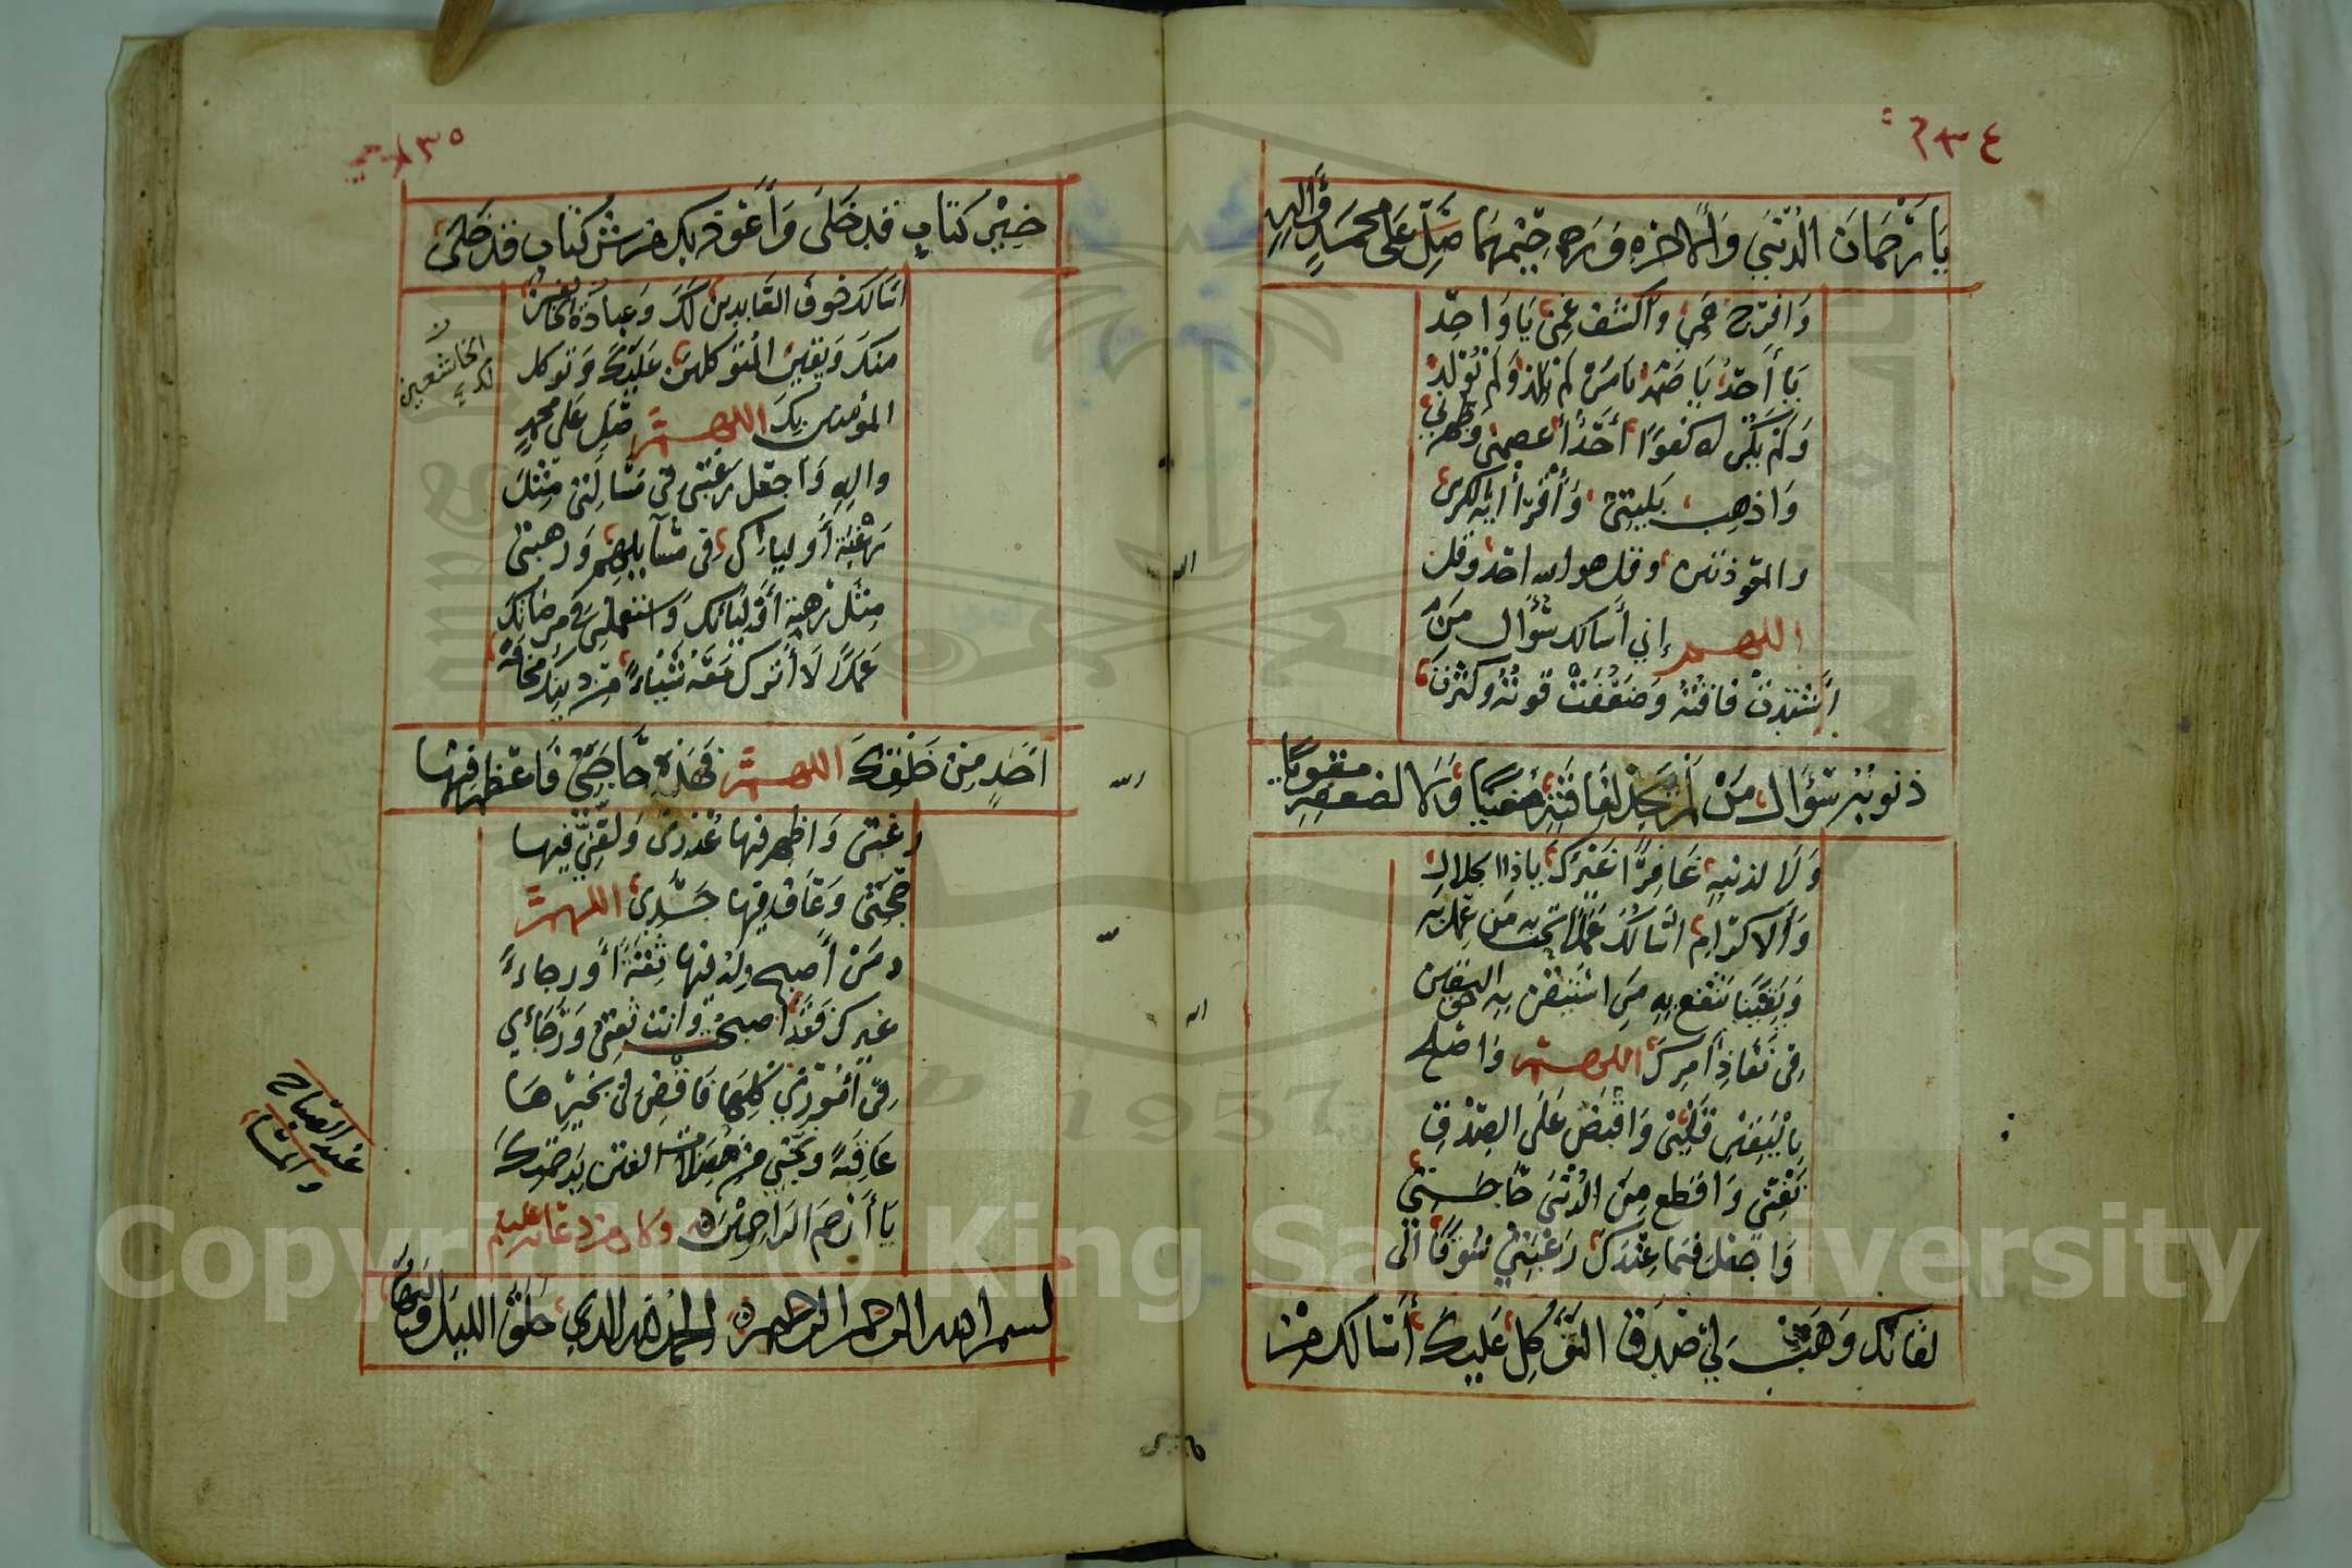 ٢٣٤
يَا رَحْمَانَ الدُّنْيَى وَالْاخِرَهِ وَرَحِيْمَهُمَا صَلِّ عَلَى مُحَمَّدٍ وَّالِهِ
وَافرِج هَمِّي وَاكشف غمِّى يَا وَاحِدُ
يَا أَحَدُ يَا صَمَدُ يَا مَنْ لَمْ يَلِدْ وَلَمْ يُوْلَدْ
وَلَمْ يَكُنْ له كفُوًا أَحَدًا أعصمنى وَطهرنى
وَاذهِب بَلِيَّتِى وَأَقْرَأ اية الكرسى
والمعوذتين وقل هو الله احد وقل
اللهم إني أسالك سُؤَال مَنْ
أَشْتَدتْ فَاقَتُهُ وَضَعُفَتْ قُوتُهُ وكثرت
ذنوبُهُ سُؤَال مَنْ لَمْ يَجِدْ لِفَاقَتِهِ مُغيثًا وَلَا لضعفِهِ مقويًا
وَلَا لذنْبِهِ غَافِرًا غَيْرَكَ يا ذا الجلال
وَالاكرَام اسَالكَ عَمَلًا تحب به مَن عَمِلَ به
وَيَقِيْنًا تنْفَع بِهِ مَن اسْتَيْقَنَ بِهِ حق اليقين
فِى نَفَاذِ أمرِكَ اللهم وَاصلح
بِالْيَقِيْنِ قَلْبِى وَاقبِضْ عَلَى الصِّدْقِ
نَفْسِى وَاقطع مِنَ الدُّنْيَى حَاجَتِى
وَاجعَل فيمَا عِنْدَكَ رَغْبَتِي شَوقًا الَى
لقائك وَهَبْ لِي صِدقَ التَّوَكُلِ عَلَيْكَ أَسَالك مِنْ
٢٣٥
خَيْرِ كتَابٍ قَد خَلَى وَأَعُوذ بِكَ من شر كتَابٍ قد خَلَى
اسَالك خوفَ العَابدِينَ لَكَ وَعِبَادَةَ الخَائفين
منكَ وَيَقِينَ المُتَوَكِلِينَ عَلَيْكَ وَتوكل
المؤمنين بِكَ اللهم صَلِّ عَلى محمدٍ
والِهِ وَاجعَل رَغْبَتِى فِى مَسْالَتِى مِثْلَ
رَغْبَة أَوليائك فِى مسَآيلِهِم وَرهبَتِى
مِثْل رَهْبَة أَوْليَائك وَاستعملنى فِي مَرضَاتكَ
عَمَلًا لَا أَترك مَعَهُ شَيْئاً مِن دينكَ مَخَافَةَ
الخاشعين لك
احَدٍ مِنْ خَلْقِكَ اللهم فَهَذِهِ حَاجَتِى فَاعظِم فِيْهَا
رغبتى وَاظهِر فيها عُذرى وَلَقِّنِّي فِيها
حُجَتِى وَعَافِ فيها جَسَدِى اللهم
ومَنْ أَصبح وله فيها ثِقةً أَو رجاءً
غيرك فَقَد أصبحت وَانت ثقتى وَرَجَائي
فِى أمُوْرِي كُلِهَا فَاقْضِ لى بِخَيْرِهَا
عَافيَةً وَنجِّنِي مِنْ مُضِلَّات الفتن بِرَحْمَتِكَ
يَا أَرْحَمَ الرَاحِمِيْنَ وكان من دعائه عليه
عند الصباح
والمسَآء
بسم الله الرحمن الرحيم الحمد لله الذي خَلَقَ الليل وَالنهار